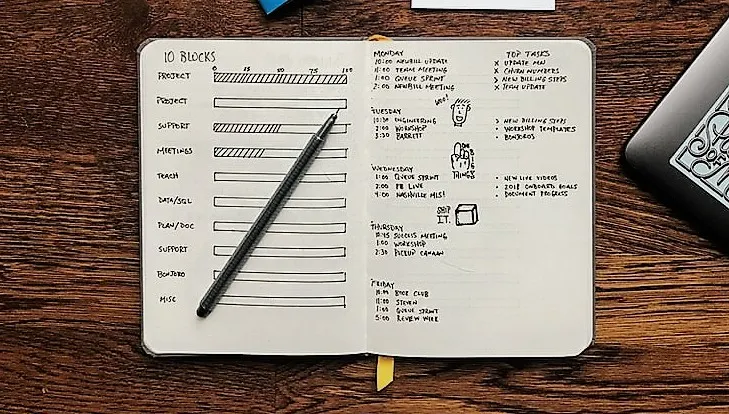 10 BLOCKS
0 25 50 75 100
PROJECT
PROJECT
SUPPORT
MEETINGS
TEACH
DATA/SQL
PLAN/DOC
SUPPORT
BONJORO
MISC
MONDAY
10:00 NEWBILL UPDATE
11:00 TEAM MEETING
1:00 QUEUE SPRINT
2:00 NEWBILL MEETING
TOP TASKS
X UPDATE MN
X CHURN NUMBERS
> NEW BILLING STEPS
X TEAM UPDATE
WOO!
TUESDAY
10:30 ENGINEERING
2:00 WORKSHOP
3:30 BARRETT
> NEW BILLING STEPS
• WORKSHOP TEMPLATES
• BONJOROS
BIG
THINGS
WEDNESDAY
1:00 QUEUE SPRINT
2:00 FB LIVE
4:00 NASHVILLE MLS!
• NEW LIVE VIDEOS
• 2018 ONBOARD GOALS
• DOCUMENT PROGRESS
SHIP
IT.
THURSDAY
10:45 SUCCESS MEETING
1:00 WORKSHOP
2:30 PICKUP CANAAN
FRIDAY
10:00 BOOK CLUB
11:00 STEVEN
1:00 QUEUE SPRINT
3:00 REVIEW WEEK
OF